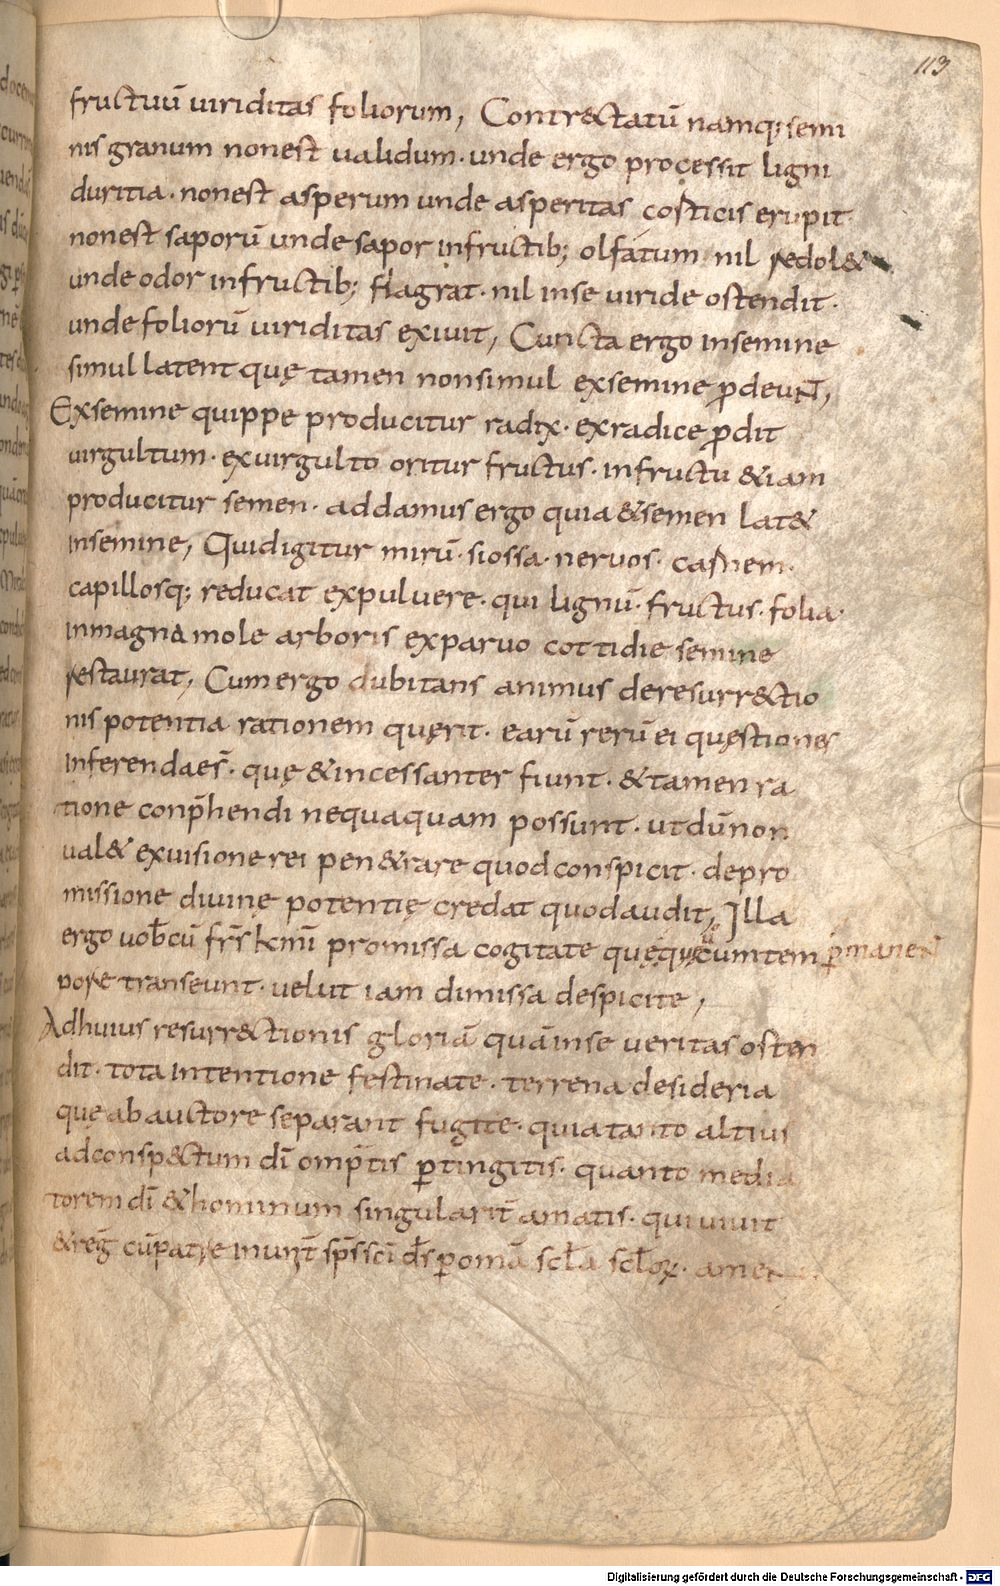 113
fructuū uiriditas foliorum, Contr&ctatū namq; semi
nis granum non est ualidum· unde ergo processit ligni
duritia· non est asperum unde asperitas corticis erupit·
non est saporū unde sapor infructib; olfatum nil redol&
unde odor infructib; flagrat· nil inse uiride ostendit·
unde foliorū uiriditas exiuit, Cuncta ergo insemine
simul latent quę tamen nonsimul exsemine p̄deunt,
Exsemine quippe producitur radix· exradice p̄dit
uirgultum· exuirgulto oritur fructus· infructu &iam
producitur semen· addamus ergo quia & semen lat&
insemine, Quid igitur mirū· si ossa· neruos· carnem·
capillosq; reducat expuluere· qui lignū· fructus· folia·
in magna mole arboris exparuo cottidie semine
restaurat, Cum ergo dubitans animus deresurr&ctio
nis potentia rationem quęrit· earū rerū ei quęstiones
inferendae s̄· quę &incessanter fiunt· & tamen ra
tione conp̄hendi nequaquam possunt· ut dū non
ual& exuisione rei pen&rare quod conspicit· depro
missione diuinę potentię credat quod audit, Illa
ergo uob̄cū fr̄s k̄mi promissa cogitate quę p̄manent quę cum tem
pore transeunt· uelut iam dimissa despicite,
Ad huius resurr&ctionis gloriā quā inse ueritas osten
dit· tota intentione festinate· terrena desideria
quę ab auctore separant fugite· quia tanto altius
ad consp&ctum dī omp̄tis p̄tingitis· quanto media
torem dī & hominum singularit̄ amatis· qui uiuit
& reḡ cū patre in unit̄ sp̄s sc̄i d̄s p̄ omā scl̄a scl̄oꝝ· amen
Digitalisierung gefördert durch die Deutsche Forschungsgemeinschaft - DFG